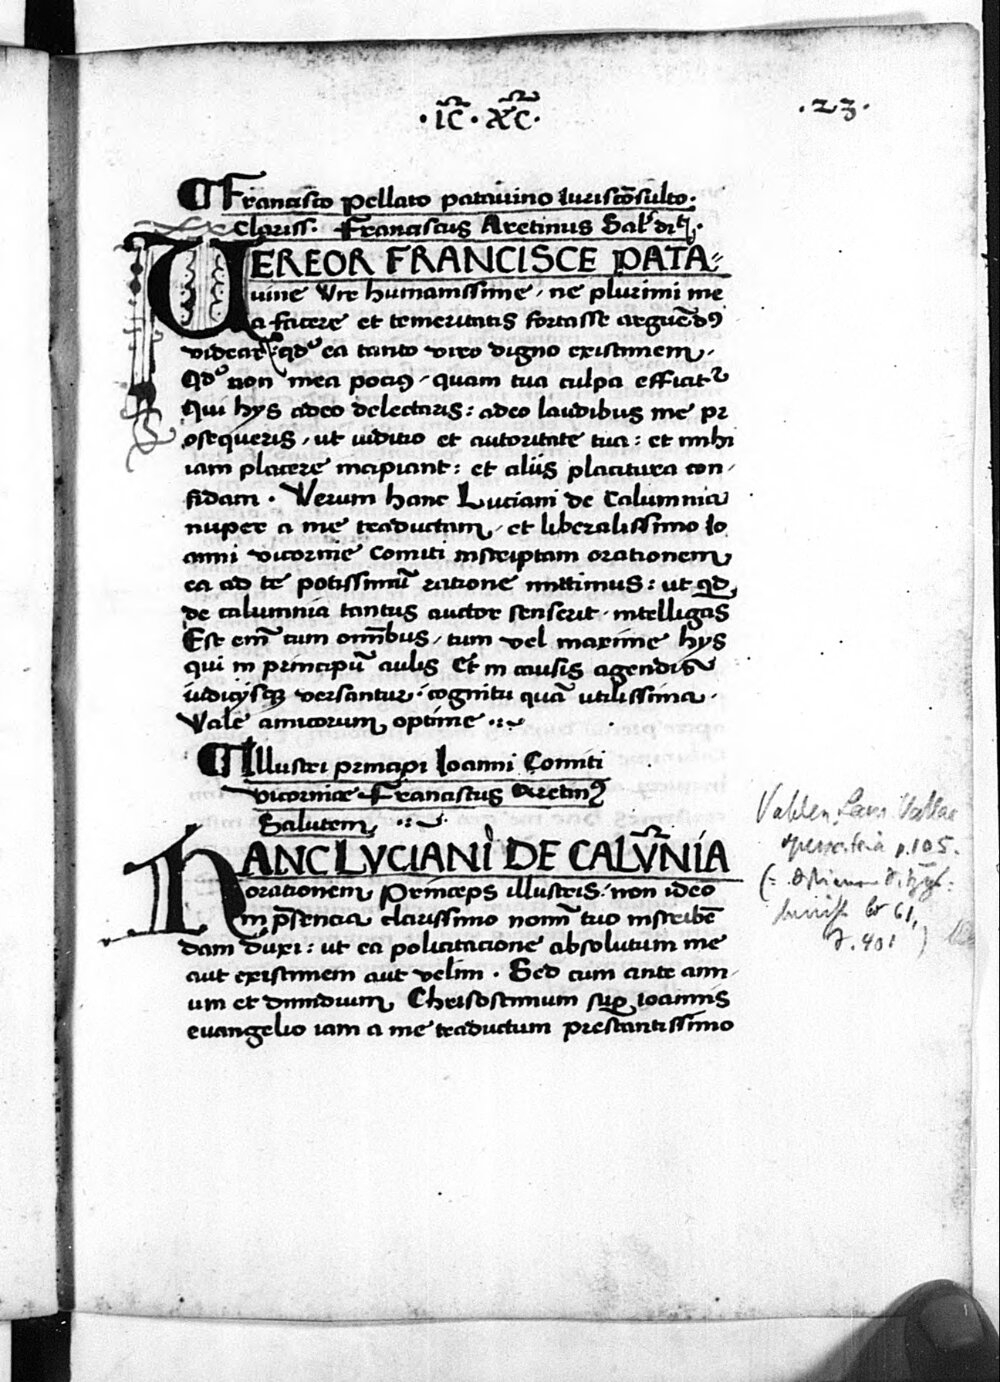 ·ic̄· xc̄·
·23·
Francisco pellato patauino Iuriscōsulto·
Clariss· Franciscus Aretinus Sal' di
VEREOR FRANCISCE PATA
uine Vir humanissime, ne plurimi me
a facere et temeritatis fortasse arguēdꝰ
videar: qd' ea tanto viro digno existimem,
Qd' non mea pociꝰ, quam tua culpa efficitᷣ
Qui hys adeo delectaris: adeo laudibus me pr
osequeris, ut iuditio et autoritate tua: et mihi
iam placere incipiant: et aliis placitura con,
fidam. Verum hanc Luciani de Calumnia
nuper a me traductam, et liberalissimo Io
anni vicornie Comiti inscriptam orationem,
ea ad te potissimū ratione mittimus: ut qd,
de calumnia tantus auctor senserit, intelligas
Est em̄ cum om̄ibus, tum vel maxime hys
qui in principū aulis Et in causis agendis
iudicysqꝫ versantur, cognitu quā utilissima.
Vale amicorum optime
Illustri principi Ioanni Comiti
vicornie Franciscus Aretinꝰ
Salutem,
HANC LVCIANI DE CALV̄NIA
orationem Princeps illustris, non ideo
in p̄sencia clarissimo nom̄i tuo inscribē
dam duxi: ut ea policitacione absolutum me
aut existimem aut velim. Sed cum ante ann,
um et dimidium, Chrisostimum suꝑ ioannis
euangelio iam a me traductum prestantissimo
Vahlen, Laur. Vallae
opuscula p. 105.
61,
p. 401 )